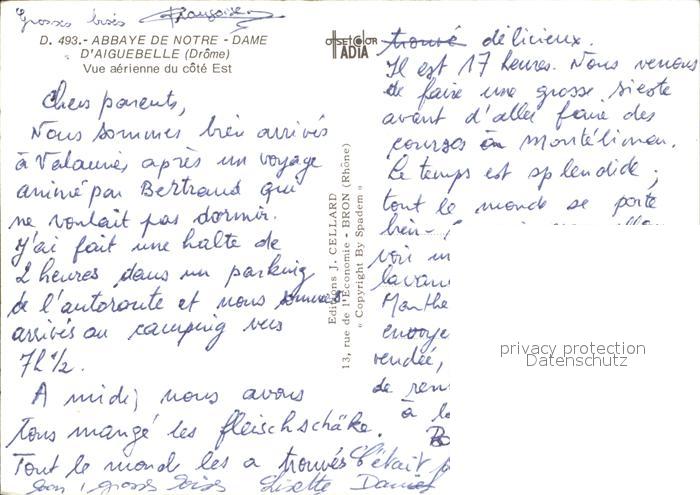 Grosses bises Françoise
D. 493.- ABBAYE DE NOTRE - DAME
D'AIGUEBELLE (Drôme)
Vue aérienne du côté Est
Chers parents,
Nous sommes bien arrivés
à Valaurie, après un voyage
animé par Bertrand qui
ne voulait pas dormir.
J'ai fait une halte de
2 heures dans un parking
de l'autoroute et nous sommes
arrivés au camping vers
7h 1/2.
A midi, nous avons
tous mangé les fleischschäke.
Tout le monde les a trouvés
OFFSETCOLOR
TADIA
Editions J. CELLARD
13, rue de l'Economie - BRON (Rhône)
« Copyright By Spadem »
trouvé délicieux.
Il est 17 heures. Nous venons
de faire une grosse sieste
avant d'aller faire des
courses à Montélimar.
Le temps est splendide ;
tout le monde se porte
bien
voir
lavan
Monthe
envoye
vendée,
de ren
à la
C'était
bon, grosses bises Lisette Daniel
privacy protection
Datenschutz